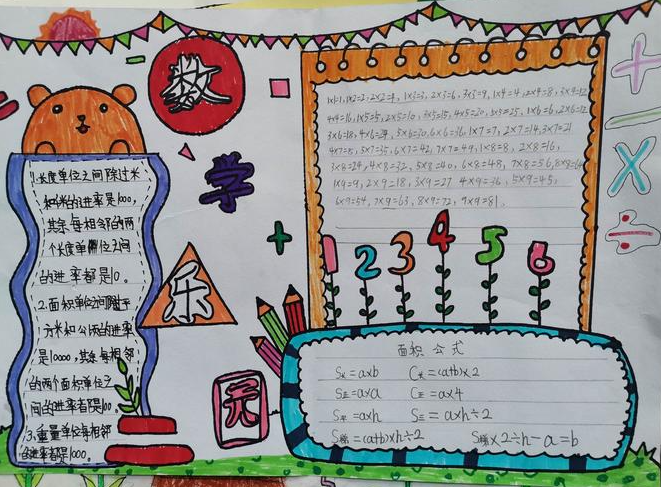 数
学
乐
园
1.长度单位之间除过米
和米的进率是1000,
其余每相邻的两
个长度单位之间
的进率都是10。
2.面积单位间除于
方米和公顷的进率
是10000,其余每相邻
的两个面积单位之
间的进率都是100。
3.重量单位每相邻
的进率都是1000。
1×1=1,1×2=2,2×2=4,1×3=3,2×3=6,3×3=9,1×4=4,2×4=8,3×4=12
4×4=16,1×5=5,2×5=10,3×5=15,4×5=20,5×5=25,1×6=6,2×6=12
3×6=18,4×6=24,5×6=30,6×6=36,1×7=7,2×7=14,3×7=21
4×7=28,5×7=35,6×7=42,7×7=49,1×8=8,2×8=16,
3×8=24,4×8=32,5×8=40,6×8=48,7×8=56,8×8=64
1×9=9,2×9=18,3×9=27 4×9=36,5×9=45,
6×9=54,7×9=63,8×9=72,9×9=81.
1 2 3 4 5 6
+
−
×
÷
面积公式
S长=a×b C长=(a+b)×2
S正=a×a C正=a×4
S平=a×h S三=a×h÷2
S梯=(a+b)×h÷2 S梯×2÷h-a=b